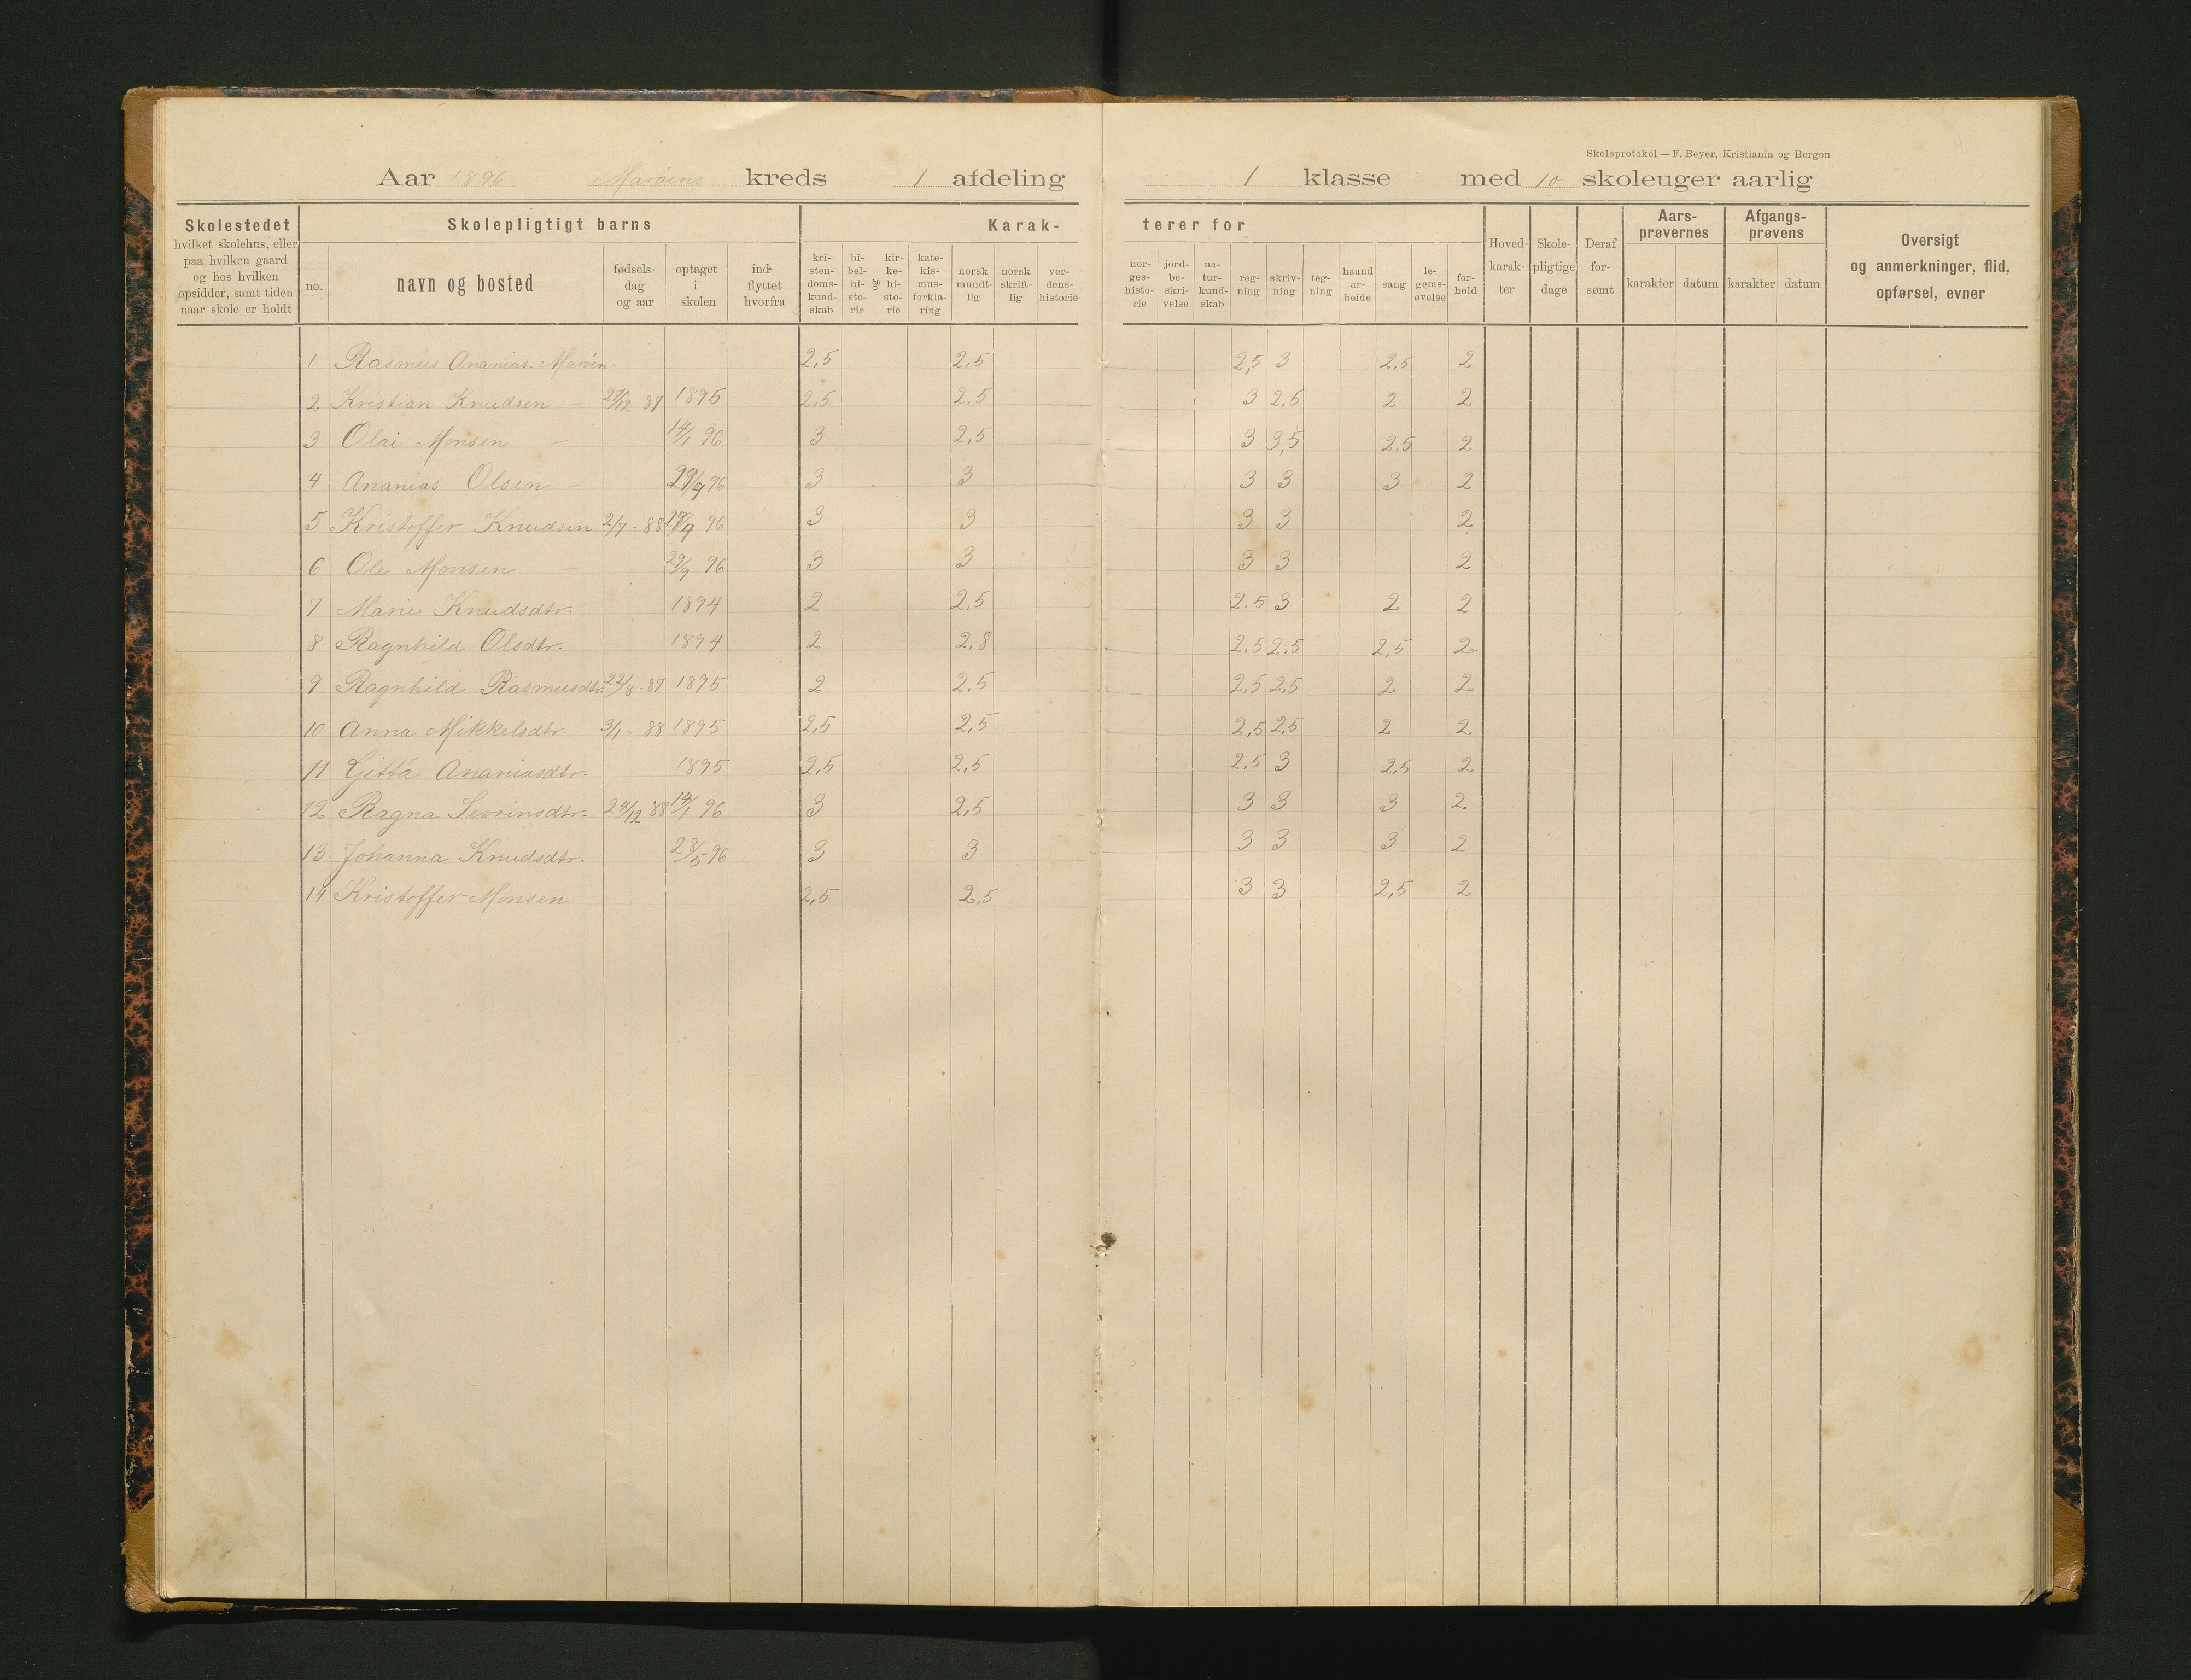 Skoleprotokol — F. Beyer, Kristiania og Bergen
Aar 1896 Marøens kreds 1 afdeling 1 klasse med 10 skoleuger aarlig
Skolestedet
hvilket skolehus, eller
paa hvilken gaard
og hos hvilken
opsidder, samt tiden
naar skole er holdt
Skolepligtigt barns
no.
navn og bosted
fødsels-
dag
og aar
optaget
i
skolen
ind-
flyttet
hvorfra
Karak-
kri-
sten-
doms-
kund-
skab
bi-
bel-
hi-
sto-
rie
og
kir-
ke-
hi-
sto-
rie
kate-
kis-
mus-
forkla-
ring
norsk
mundt-
lig
norsk
skrift-
lig
ver-
dens-
historie
terer for
nor-
ges-
histo-
rie
jord-
be-
skri-
velse
na-
tur-
kund-
skab
reg-
ning
skriv-
ning
teg-
ning
haand
ar-
beide
sang
le-
gems-
øvelse
for-
hold
Hoved-
karak-
ter
Skole-
pligtige
dage
Deraf
for-
sømt
Aars-
prøvernes
karakter datum
Afgangs-
prøvens
karakter datum
Oversigt
og anmerkninger, flid,
opførsel, evner
1 Rasmus Ananias. Marøen 2,5 2,5 2,5 3 2,5 2
2 Kristian Knudsen — 27/12 87 1895 2,5 2.5 3 2.5 2 2
3 Olai Monsen — 14/1 96 3 2,5 3 3,5 2.5 2
4 Ananias Olsen — 29/9 96 3 3 3 3 3 2
5 Kristoffer Knudsen 2/7 - 88 29/9 96 3 3 3 3 2
6 Ole Monsen — 29/9 96 3 3 3 3 2
7 Marie Knudsdtr. 1894 2 2.5 2.5 3 2 2
8 Ragnhild Olsdtr. 1894 2 2,8 2.5 2.5 2,5 2
9 Ragnhild Rasmusdtr. 22/8 - 87 1895 2 2.5 2.5 2,5 2 2
10 Anna Mikkelsdtr 3/1 - 88 1895 2,5 2,5 2,5 2,5 2 2
11 Gitta Ananiasdtr. 1895 2,5 2,5 2.5 3 2,5 2
12 Ragna Sevrinsdtr. 24/12 88 14/1 96 3 2,5 3 3 3 2
13 Johanna Knudsdtr. 28/5 96 3 3 3 3 3 2
14 Kristoffer Monsen 2,5 2.5 3 3 2,5 2